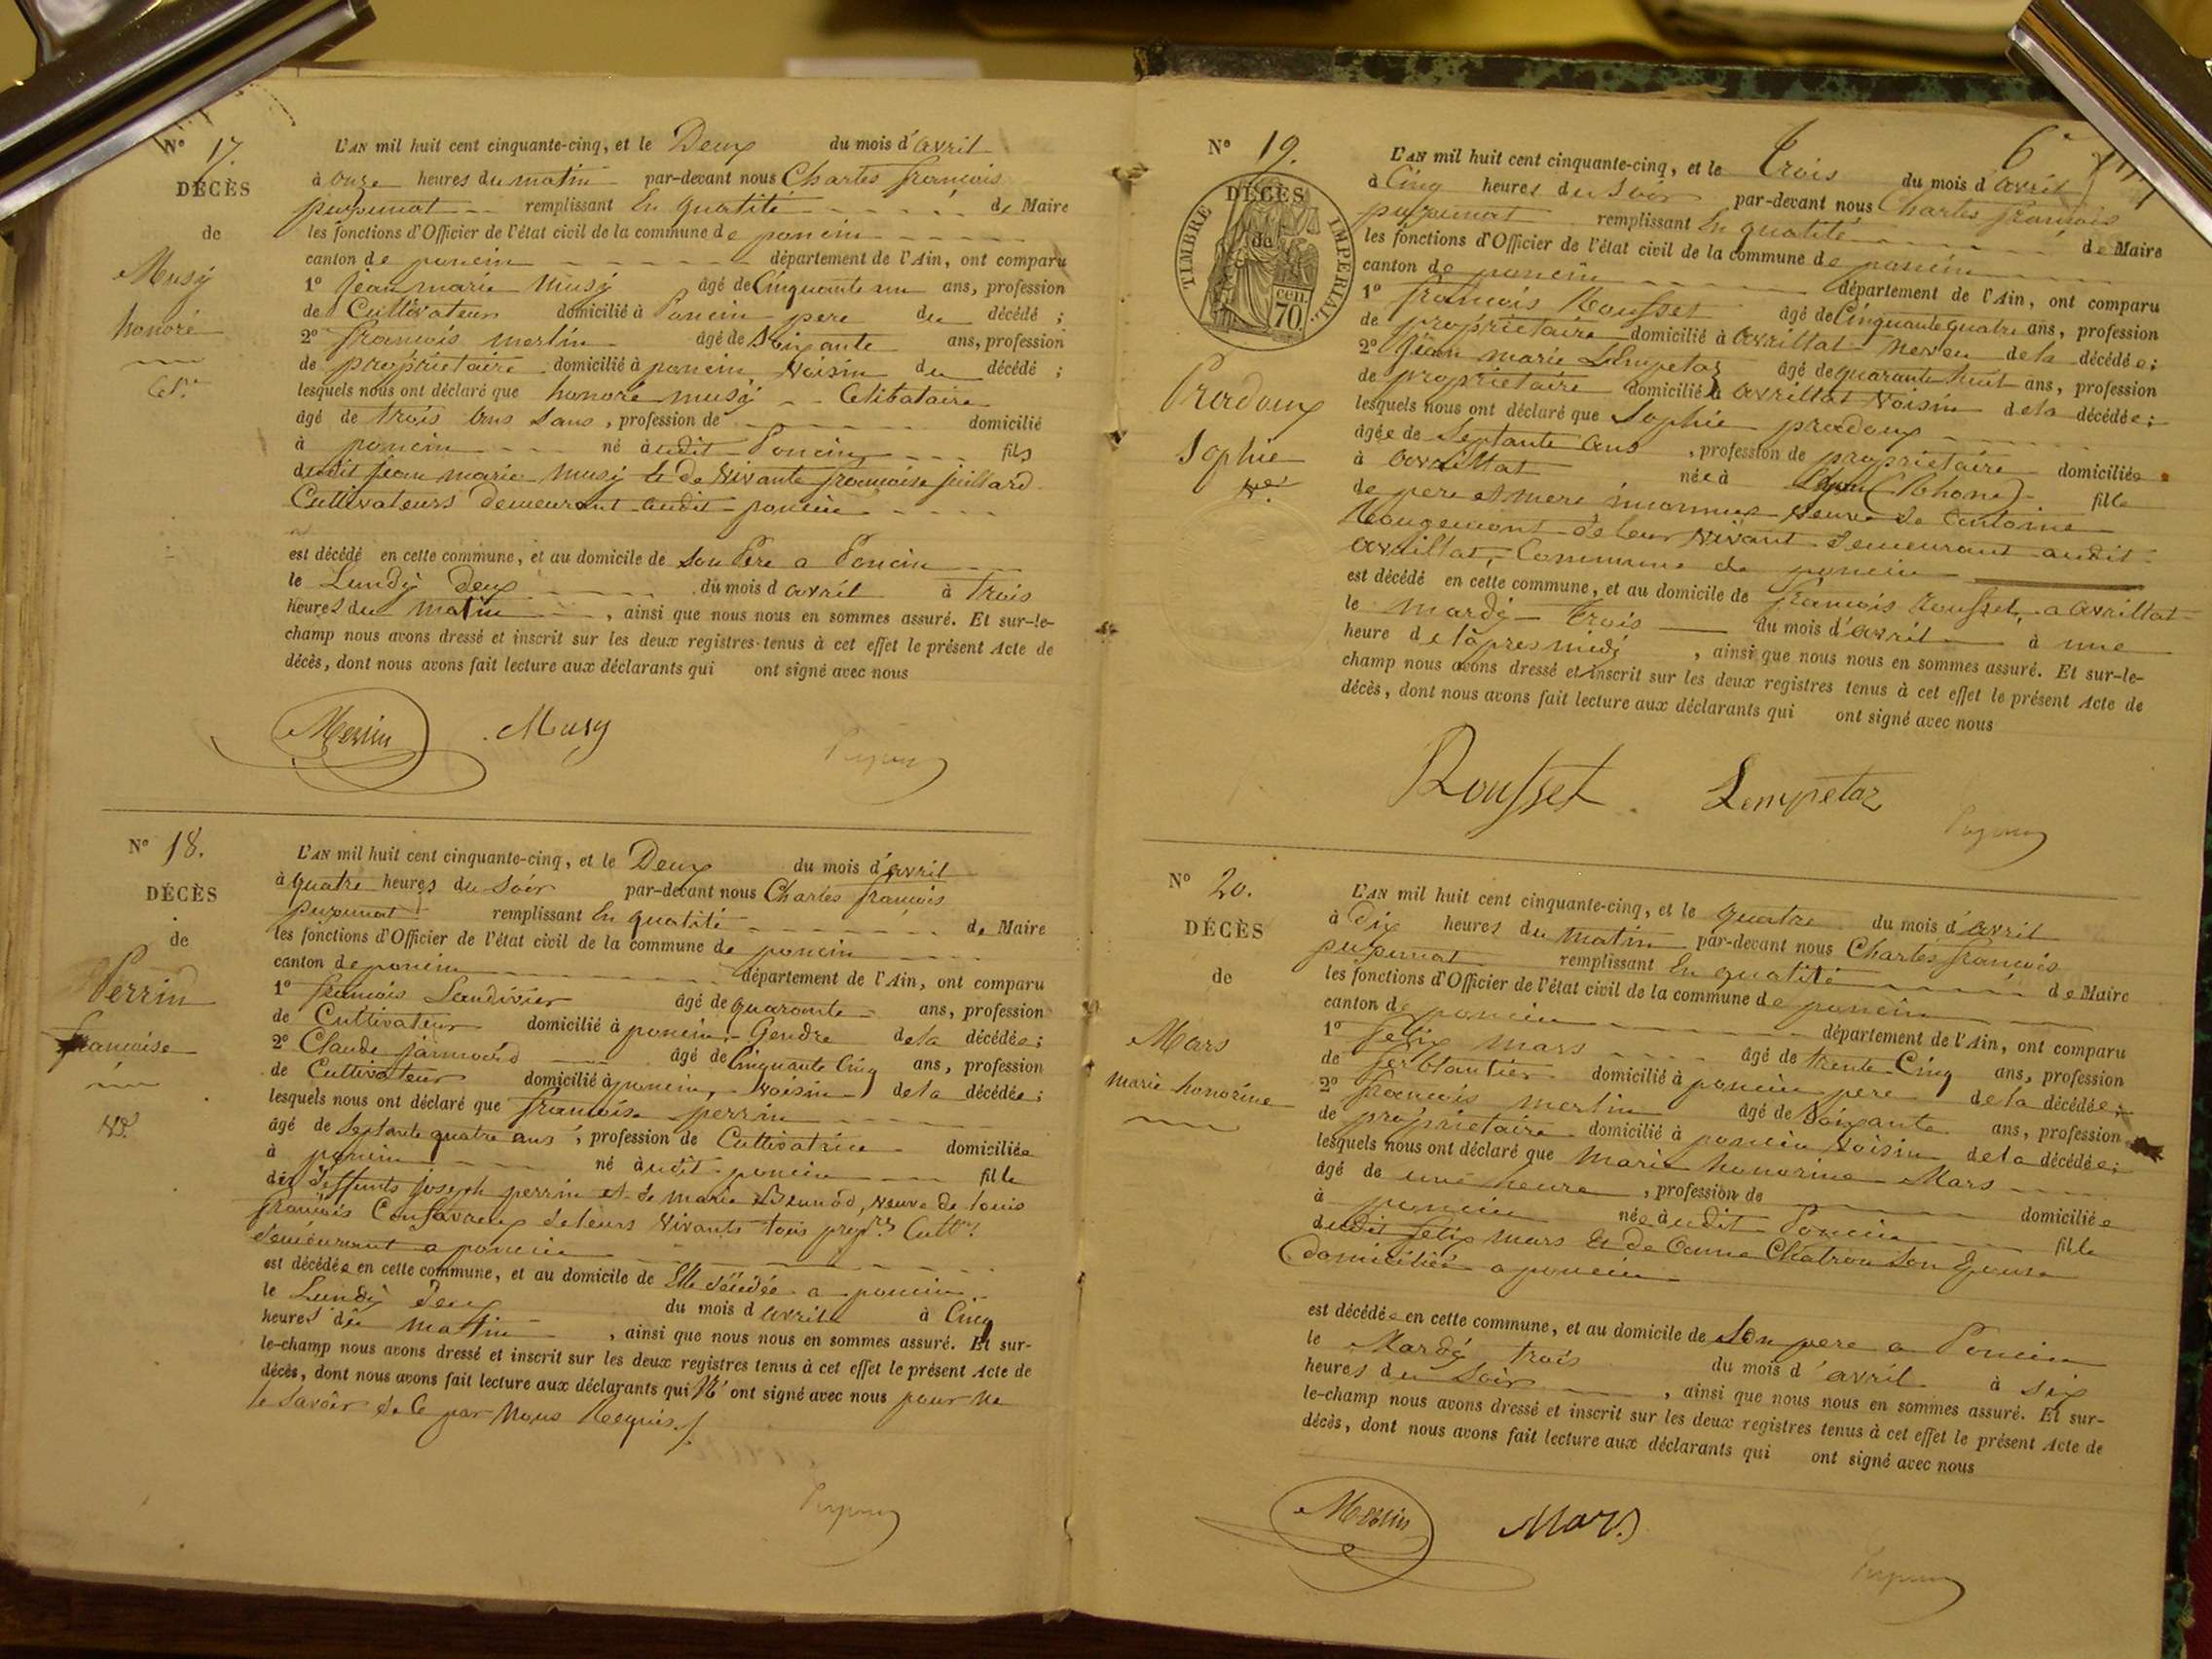 N° 17.
DÉCÈS
de
Musy
honoré
Cel.re
L'AN mil huit cent cinquante-cinq, et le Deux du mois d'avril
à onze heures du matin par-devant nous Charles françois
puzenat remplissant En qualité de Maire
les fonctions d'Officier de l'état civil de la commune de poncin
canton de poncin département de l'Ain, ont comparu
1° Jean marie Musy âgé de Cinquante un ans, profession
de Cultivateur domicilié à Poncin pere du décédé ;
2° françois merlin âgé de Soixante ans, profession
de propriétaire domicilié à poncin Voisin du décédé ;
lesquels nous ont déclaré que honoré musy Celibataire
âgé de trois ans sans, profession de domicilié
à poncin né audit Poncin fils
dudit jean marie Musy et de Vivante françoise juillard
Cultivateurs Demeurant audit poncin
est décédé en cette commune, et au domicile de Son Père a Poncin
le Lundy Deux du mois d avril à trois
heures du matin, ainsi que nous nous en sommes assuré. Et sur-le-
champ nous avons dressé et inscrit sur les deux registres tenus à cet effet le présent Acte de
décès, dont nous avons fait lecture aux déclarants qui ont signé avec nous
Merlin Musy
N° 18.
DÉCÈS
de
Perrin
francoise
Ve.
L'AN mil huit cent cinquante-cinq, et le Deux du mois d'avril
à quatre heures du Soir par-devant nous Charles françois
puzenat remplissant En qualité de Maire
les fonctions d'Officier de l'état civil de la commune de poncin
canton de poncin département de l'Ain, ont comparu
1° françois Landivier âgé de quarante ans, profession
de Cultivateur domicilié à poncin, Gendre de la décédée ;
2° Claude âgé de Cinquante Cinq ans, profession
de Cultivateur domicilié à poncin, Voisin de la décédée ;
lesquels nous ont déclaré que francoise perrin
âgé de Septante quatre ans, profession de Cultivatrice domiciliée
à poncin né audit poncin fille
des deffunts joseph perrin et de marie, Veuve de louis
françois de leurs Vivants tous prop.res Cult.rs
demeurant a poncin
est décédée en cette commune, et au domicile de Elle décédée a poncin
le Lundy deux du mois d avril à Cinq
heures du matin, ainsi que nous nous en sommes assuré. Et sur-
le-champ nous avons dressé et inscrit sur les deux registres tenus à cet effet le présent Acte de
décès, dont nous avons fait lecture aux déclarants qui N'ont signé avec nous pour ne
le Savoir de Ce par Nous Requis.
6e
N° 19.
TIMBRE IMPERIAL
DÉCÈS
de
cen.
70
Pradoux
Sophie
Ve.
L'AN mil huit cent cinquante-cinq, et le Trois du mois d'avril
à Cinq heures du Soir par-devant nous Charles françois
puzenat remplissant En qualité de Maire
les fonctions d'Officier de l'état civil de la commune de poncin
canton de poncin département de l'Ain, ont comparu
1° françois Rousset âgé de Cinquante quatre ans, profession
de propriétaire domicilié à avrillat neveu de la décédée ;
2° Jean marie Lempetaz âgé de quarante huit ans, profession
de propriétaire domicilié à avrillat Voisin de la décédée ;
lesquels nous ont déclaré que Sophie pradoux
âgée de Septante ans, profession de propriétaire domiciliée
à avrillat née à Lyon (Rhone) fille
de pere et mere inconnus Veuve de antoine
Rougemont de leur Vivant demeurant audit
avrillat, Commune de poncin
est décédé en cette commune, et au domicile de françois rousset, a avrillat
le mardy Trois du mois d'avril à une
heure de l'apres midy, ainsi que nous nous en sommes assuré. Et sur-le-
champ nous avons dressé et inscrit sur les deux registres tenus à cet effet le présent Acte de
décès, dont nous avons fait lecture aux déclarants qui ont signé avec nous
Rousset Lempetaz
N° 20.
DÉCÈS
de
Mars
marie honorine
L'AN mil huit cent cinquante-cinq, et le quatre du mois d'avril
à Dix heures du matin par-devant nous Charles françois
puzenat remplissant En qualité de Maire
les fonctions d'Officier de l'état civil de la commune de poncin
canton de poncin département de l'Ain, ont comparu
1° félix mars âgé de trente Cinq ans, profession
de ferblantier domicilié à poncin pere de la décédée ;
2° françois merlin âgé de Soixante ans, profession
de propriétaire domicilié à poncin Voisin de la décédée ;
lesquels nous ont déclaré que Marie honorine Mars
âgé de une heure, profession de domiciliée
à poncin née audit Poncin fille
dudit félix mars et de Anne Chatron Son Epouse
Domiciliés a poncin
est décédée en cette commune, et au domicile de Son pere a Poncin
le Mardy trois du mois d'avril à Six
heures du Soir, ainsi que nous nous en sommes assuré. Et sur-
le-champ nous avons dressé et inscrit sur les deux registres tenus à cet effet le présent Acte de
décès, dont nous avons fait lecture aux déclarants qui ont signé avec nous
Merlin Mars